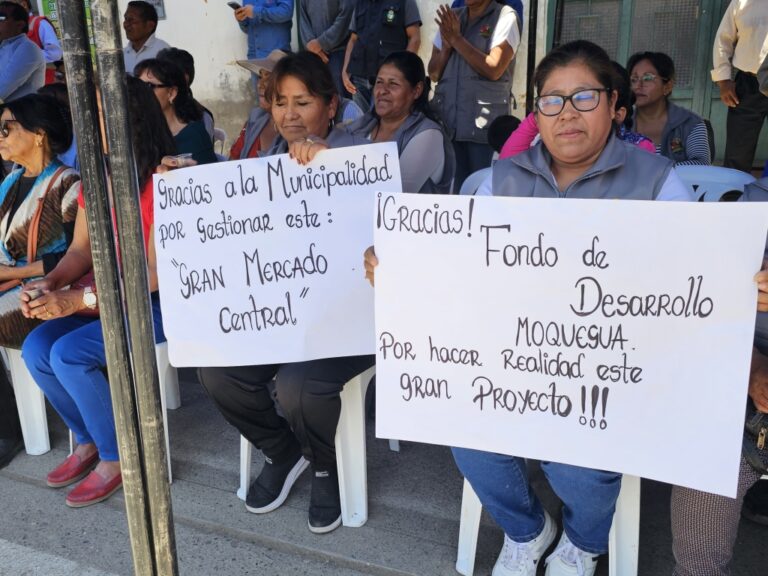 Gracias a la Municipalidad
por Gestionar este:
"GRAN MERCADO
Central"
¡Gracias!
Fondo de
Desarrollo
MOQUEGUA.
Por hacer Realidad este
gran Proyecto!!!